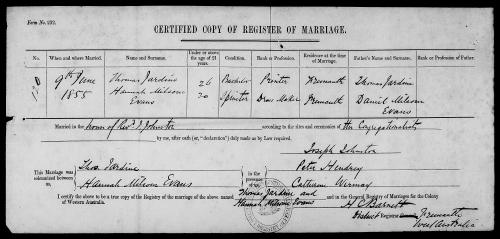 Form No. 292.
CERTIFIED COPY OF REGISTER OF MARRIAGE.
No. When and where Married. Name and Surname. Under or above the age of 21 years Condition Rank or Profession. Residence at the time of Marriage. Father's Name and Surname. Rank or Profession of Father.
9th June Thomas Jardine 26 Bachelor Printer Fremantle Thomas Jardine
1855 Hannah Milsom Evans 20 Spinster Dress Maker Fremantle Daniel Milsom Evans
Married in the house of Revd J Johnston according to the rites and ceremonies of the Congregationalists
by me, after oath (or, "declaration") duly made as by Law required.
Joseph Johnston
This Marriage was solemnized between us Thos. Jardine in the presence of us Peter Hendrey
Hannah Milsom Evans Catharine
I certify the above to be a true copy of the Registry of the marriage of the above named Thomas Jardine and Hannah Milsom Evans and in the General Registry of Marriages for the Colony of Western Australia.
District Registrar Fremantle
West Australia